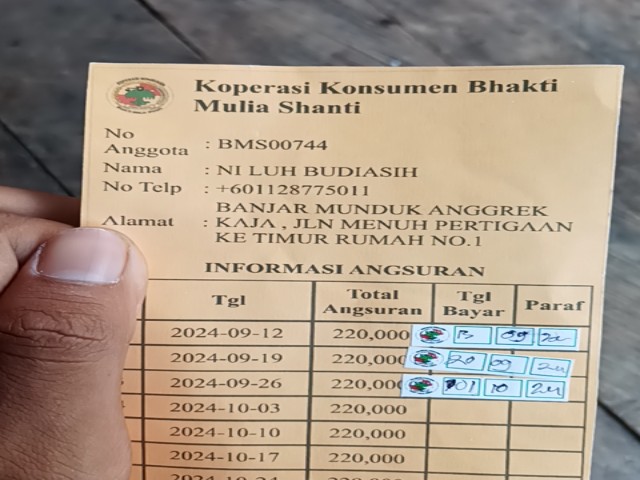 Koperasi Konsumen Bhakti
Mulia Shanti
No
Anggota : BMS00744
Nama : NI LUH BUDIASIH
No Telp : +601128775011
BANJAR MUNDUK ANGGREK
Alamat : KAJA , JLN MENUH PERTIGAAN
KE TIMUR RUMAH NO.1
INFORMASI ANGSURAN
Tgl Total Angsuran Tgl Bayar Paraf
2024-09-12 220,000 13 09 24
2024-09-19 220,000 20 09 24
2024-09-26 220,000 01 10 24
2024-10-03 220,000
2024-10-10 220,000
2024-10-17 220,000
2024-10-24 220,000